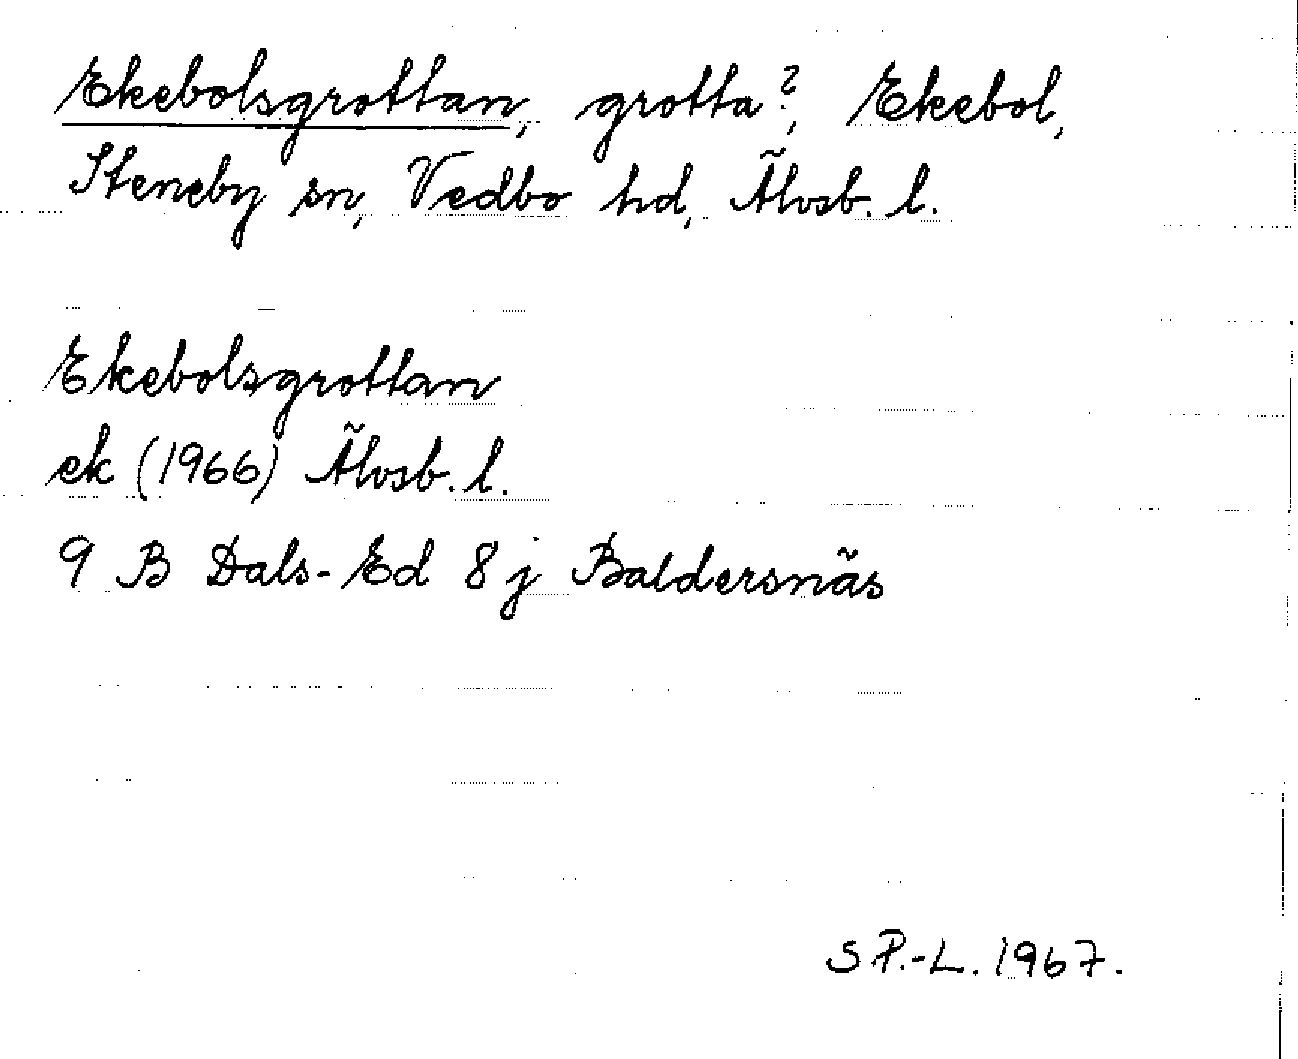 Ekebolsgrottan, grotta?, Ekebol,
Steneby sn, Vedbo hd, Älvsb. l.
Ekebolsgrottan
ek (1966) Älvsb. l.
9 B Dals-Ed 8 j Baldersnäs
S P.-L. 1967.